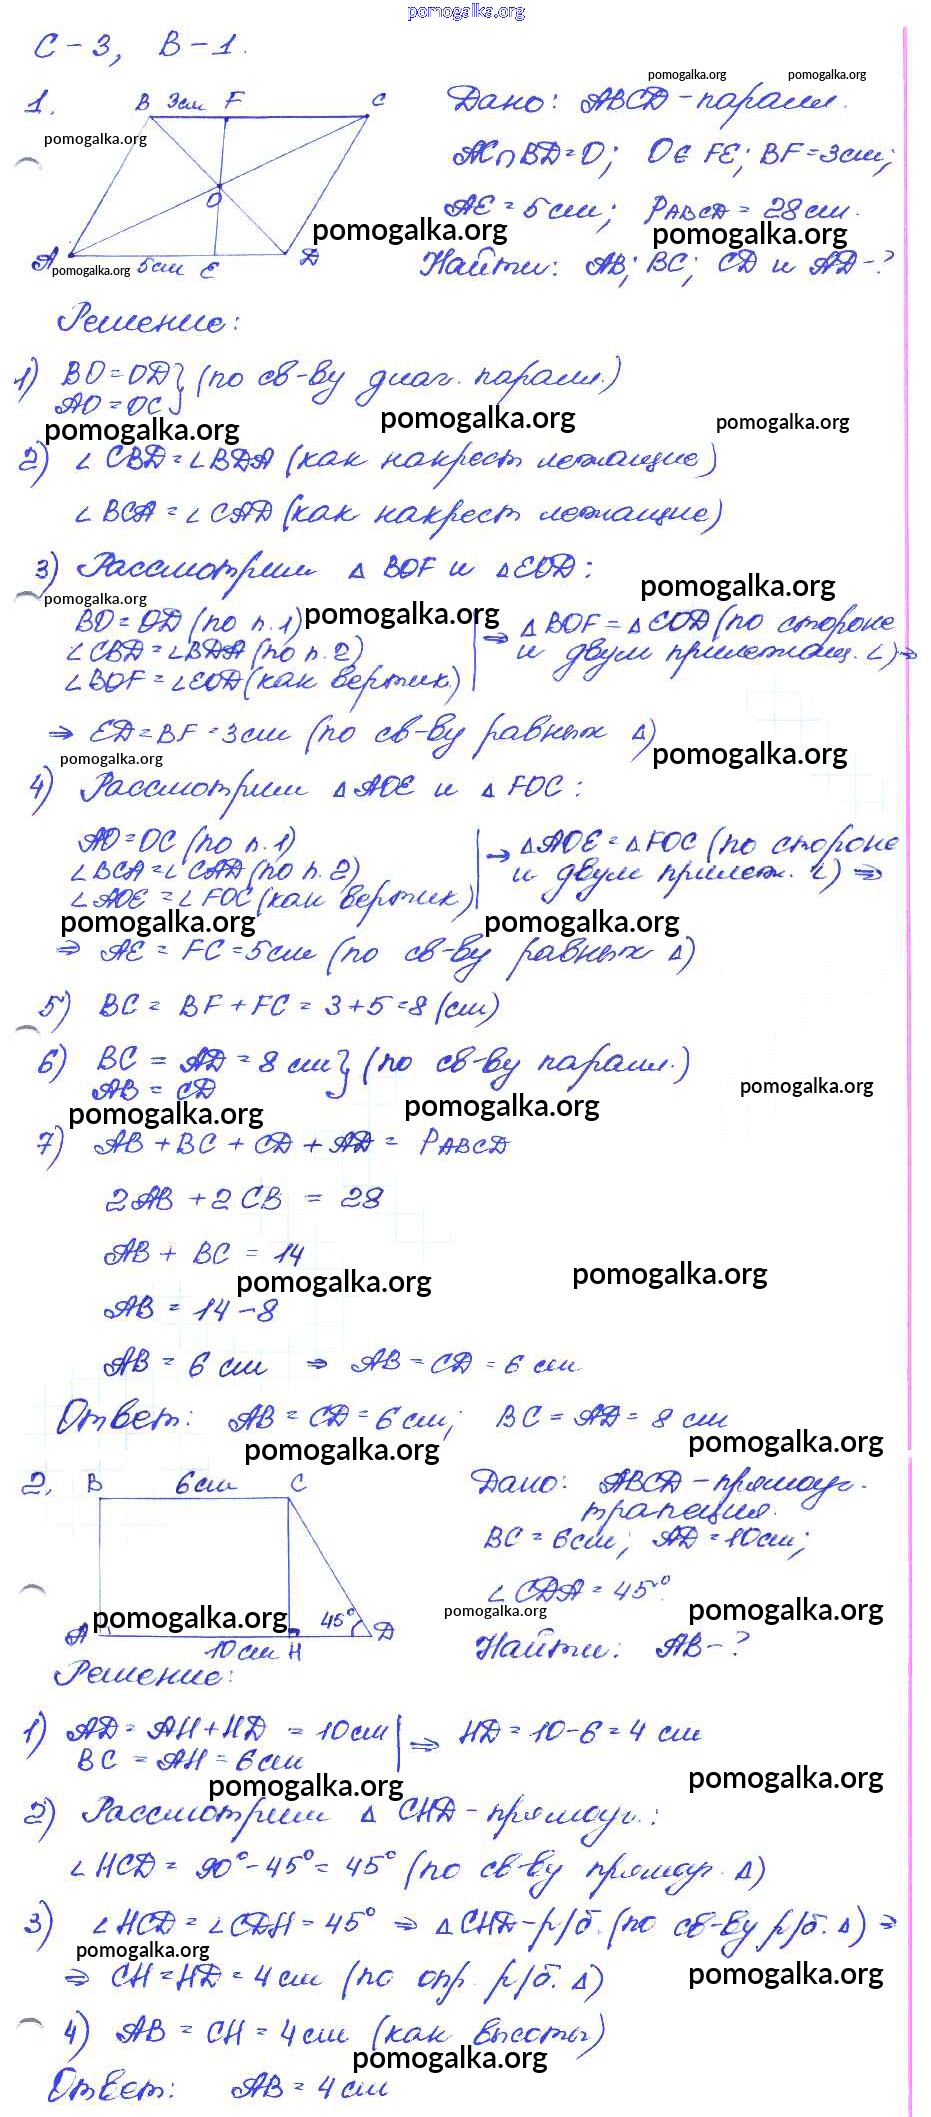 pomogalka.org
С-3, В-1.
pomogalka.org pomogalka.org
1. B 3см F C Дано: ABCD-паралл.
pomogalka.org
AC∩BD=O; O∈FE; BF=3см;
O AE=5см; PABCD=28см.
pomogalka.org pomogalka.org
A 5см E D Найти: AB; BC; CD и AD-?
pomogalka.org
Решение:
1) BO=OD} (по св-ву диаг. паралл.)
AO=OC
pomogalka.org pomogalka.org pomogalka.org
2) ∠CBD=∠BDA (как накрест лежащие)
∠BCA=∠CAD (как накрест лежащие)
3) Рассмотрим △BOF и △EOD:
pomogalka.org pomogalka.org pomogalka.org
BO=OD (по п.1) ⇒ △BOF=△EOD (по стороне
∠CBD=∠BDA (по п.2) и двум прилежащ. ∠)⇒
∠BOF=∠EOD (как вертик.)
⇒ ED=BF=3см (по св-ву равных △)
pomogalka.org pomogalka.org
4) Рассмотрим △AOE и △FOC:
AO=OC (по п.1) ⇒ △AOE=△FOC (по стороне
∠BCA=∠CAD (по п.2) и двум прилеж. ∠) ⇒
∠AOE=∠FOC (как вертик)
pomogalka.org pomogalka.org
⇒ AE=FC=5см (по св-ву равных △)
5) BC=BF+FC=3+5=8(см)
6) BC=AD=8см} (по св-ву паралл.)
AB=CD
pomogalka.org pomogalka.org pomogalka.org
7) AB+BC+CD+AD=PABCD
2AB+2CB=28
AB+BC=14
pomogalka.org pomogalka.org
AB=14-8
AB=6см ⇒ AB=CD=6см
Ответ: AB=CD=6см; BC=AD=8см
pomogalka.org pomogalka.org
2. B 6см C Дано: ABCD-прямоуг.
трапеция.
BC=6см; AD=10см;
∠CDA=45°
pomogalka.org pomogalka.org pomogalka.org
A 10см H 45° D Найти: AB-?
Решение:
1) AD=AH+HD=10см ⇒ HD=10-6=4см
BC=AH=6см
pomogalka.org pomogalka.org
2) Рассмотрим △CHD-прямоуг.:
∠HCD=90°-45°=45° (по св-ву прямоуг. △)
3) ∠HCD=∠CDH=45° ⇒ △CHD-р/б. (по св-ву р/б. △) ⇒
pomogalka.org pomogalka.org
⇒ CH=HD=4см (по опр. р/б. △)
4) AB=CH=4см (как высоты)
pomogalka.org
Ответ: AB=4см